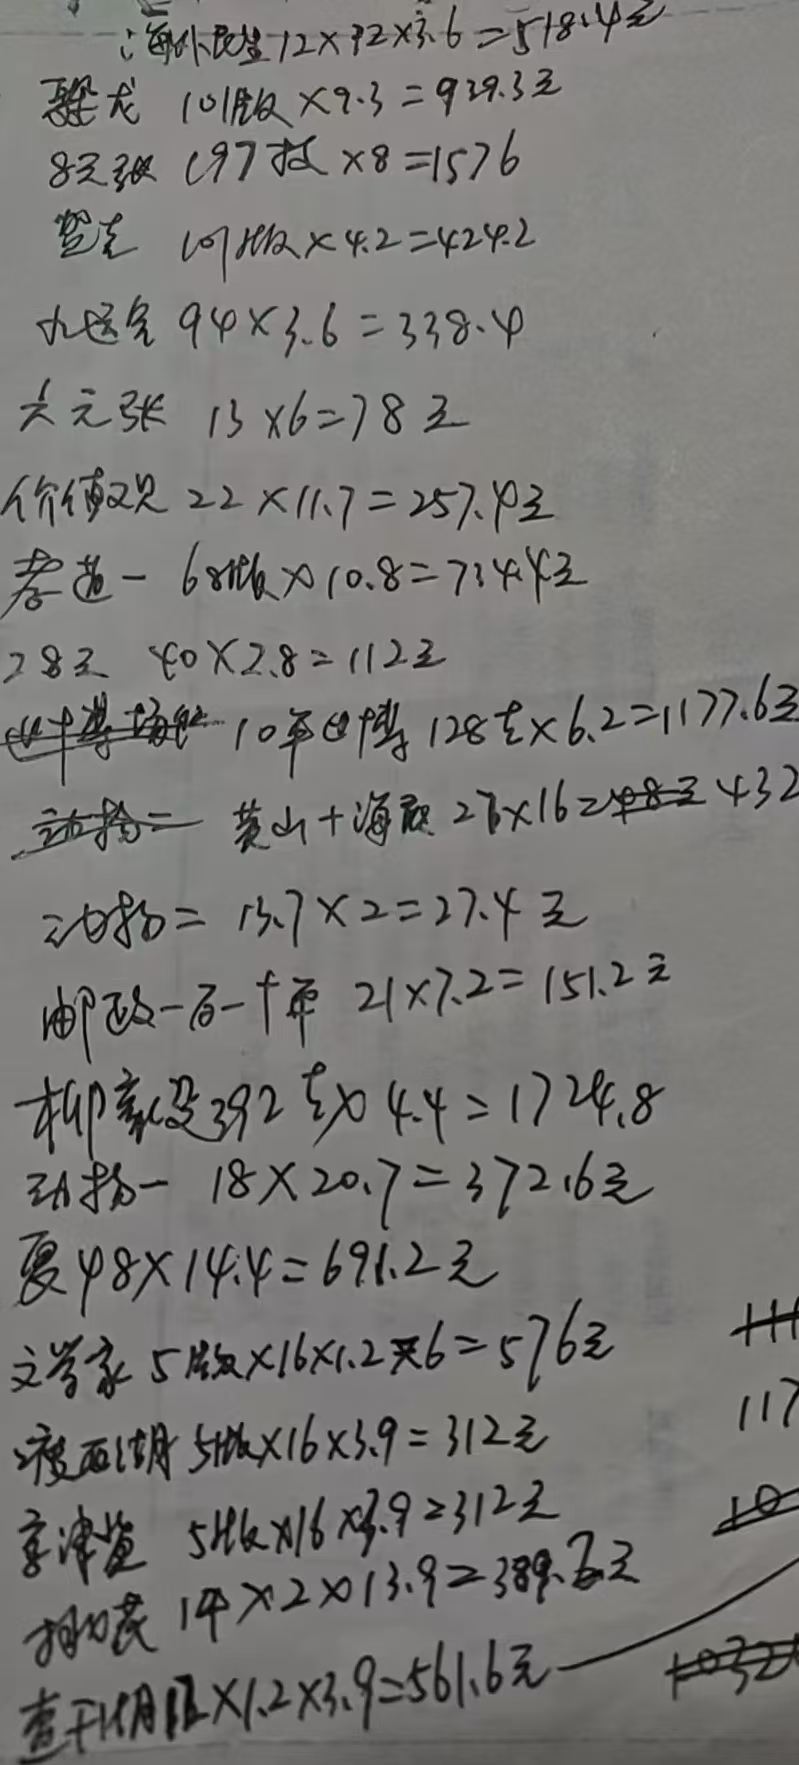 海外民生12×12×3.6=518.4元
龙 101版×9.3=939.3元
8元张 197枚×8=1576
101版×4.2=424.2
94×3.6=338.4
六元张 13×6=78元
价值观 22×11.7=257.4元
孝道一 68版×10.8=734.4元
28元 40×2.8=112元
10年世博 128套×6.2=1177.6元
黄山+海底 27×16=432
动物二 13.7×2=27.4元
邮政一百一十年 21×7.2=151.2元
柳家 392套×4.4=1724.8
动物一 18×20.7=372.6元
夏48×14.4=691.2元
文学家 5版×16×1.2×6=576元
117
瘦西湖 5版×16×3.9=312元
京津 5版×16×3.9=312元
14×2×13.9=389.2元
×1.2×3.9=561.6元